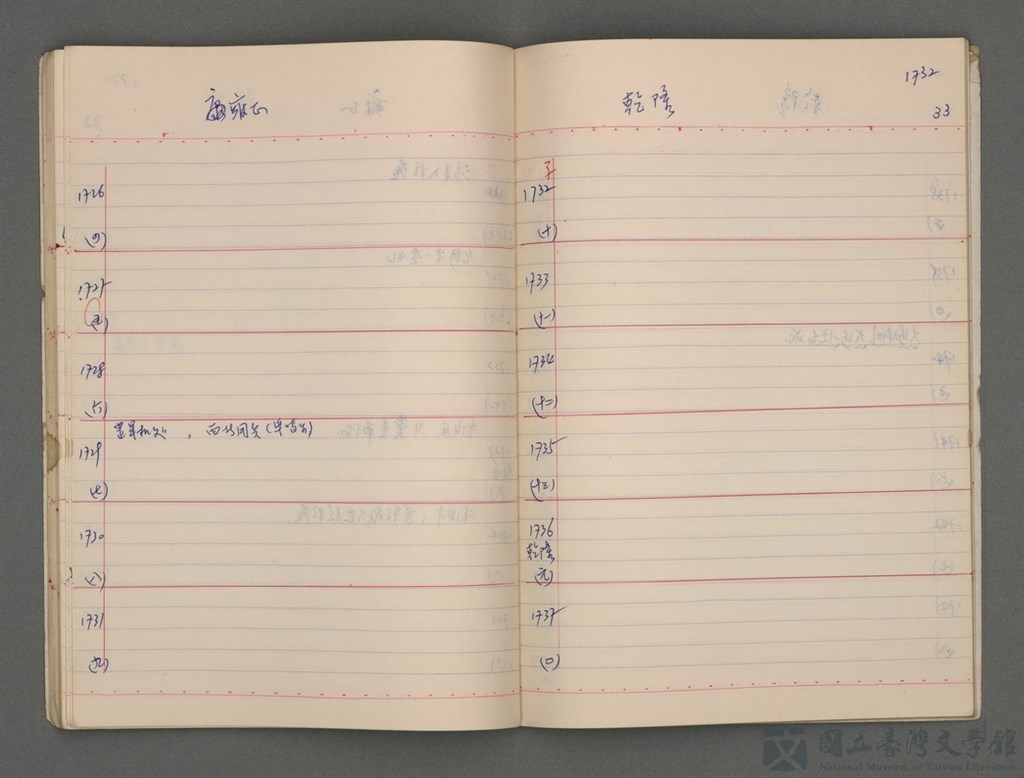 雍正
1726
(四)
1727
(五)
1728
(六)
置軍机処，西北用兵(準噶尔)
1729
(七)
1730
(八)
1731
(九)
乾隆
1732
33
1732
(十)
1733
(十一)
1734
(十二)
1735
(十三)
1736
乾隆
(元)
1737
(二)
國立臺灣文學館
National Museum of Taiwan Literature